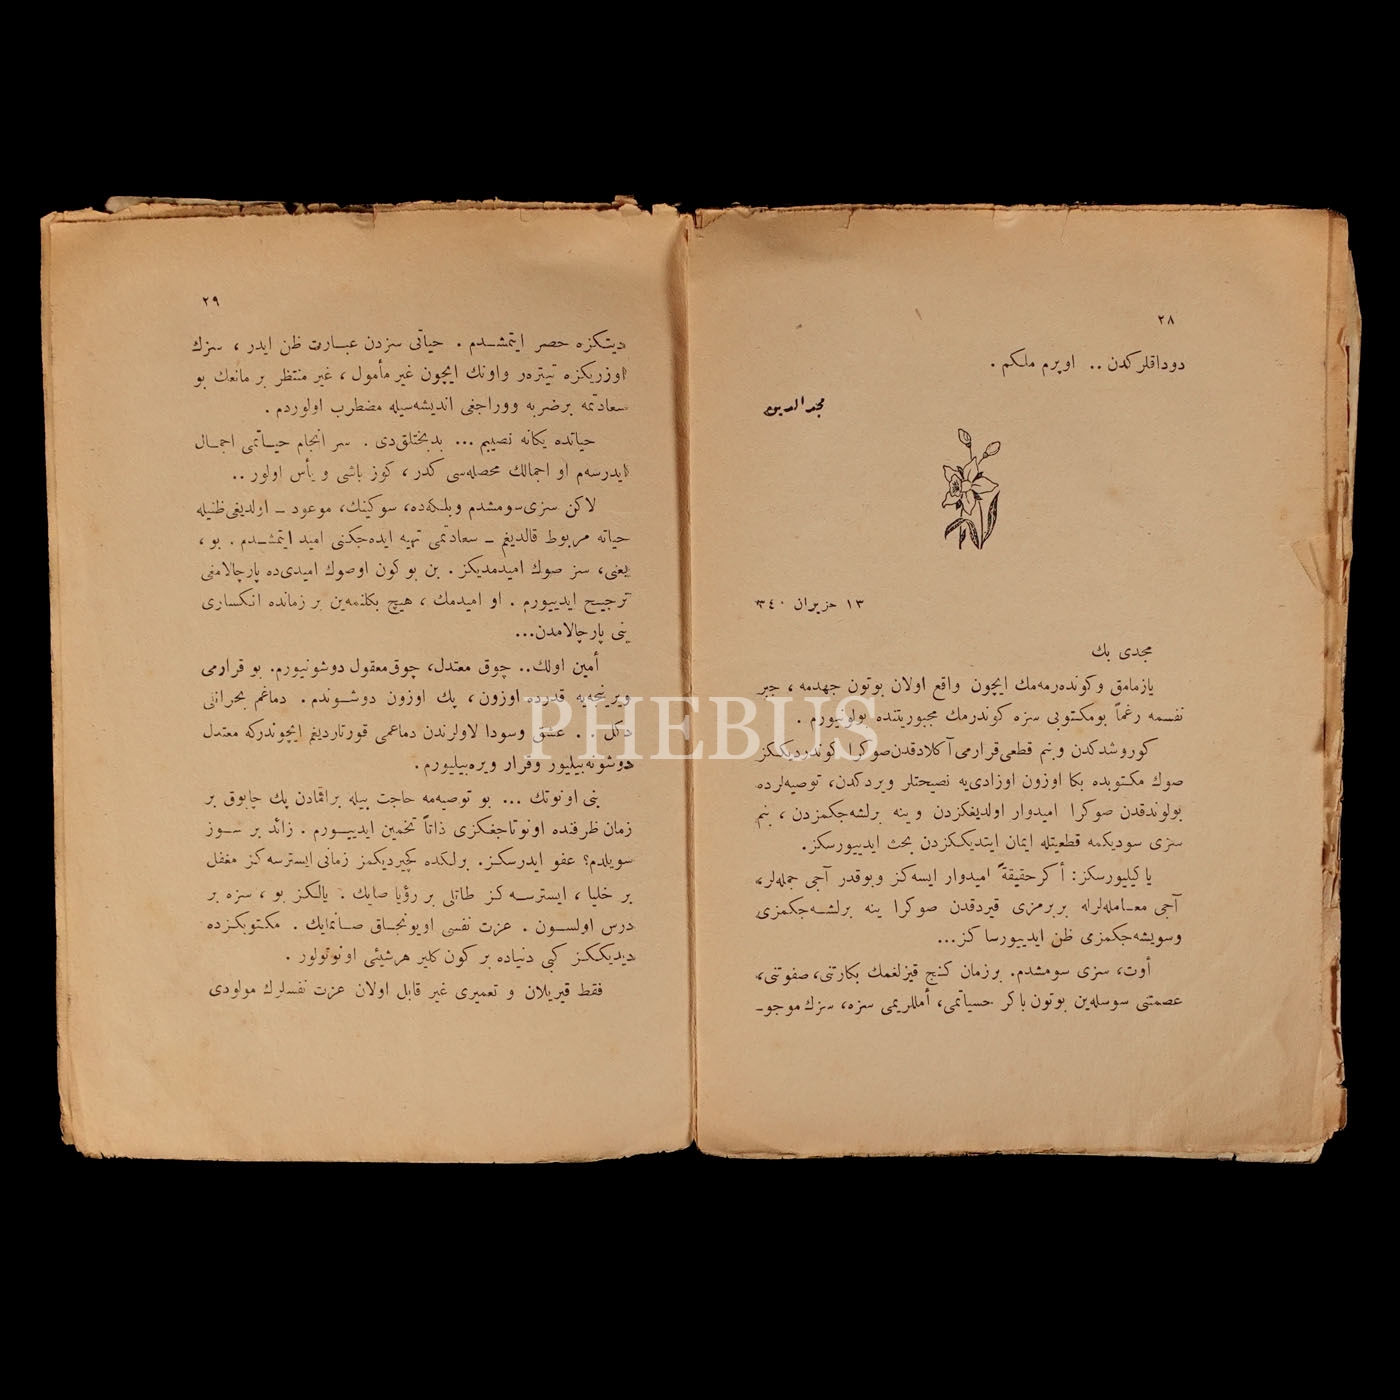 ٢٨
دوداقلركدن .. اوپرم ملكم .
مجدالدين
١٣ حزيران ٣٤٠
مجدى بك
يازمامق وكوندەرمەمك ايچون واقع اولان بوتون جهدمه ، جبر
نفسمه رغماً بومكتوبى سزه كوندرمك مجبوريتنده بولونيورم .
كوروشدكدن وبنم قطعى قرارمى آكلادقدن صوكرا كوندرديككز
صوك مكتوبده بكا اوزون اوزادى‌يه نصيحتلر ويردكدن، توصيه‌لرده
بولوندقدن صوكرا اميدوار اولديغكزدن و ينه برلشه‌جكمزدن ، بنم
سزى سوديكمه قطعيتله ايمان ايتديككزدن بحث ايدييورسكز.
ياكيليورسكز: أكر حقيقةً اميدوار ايسه‌كز وبوقدر آجى جمله‌لر،
آجى معـامله‌لرله بربرمزى قيردقدن صوكرا ينه برلشـه‌جكمزى
وسويشه‌جكمزى ظن ايدييورساكز...
أوت، سزى سومشدم. برزمان كنج قيزلغمك بكارتنى، صفوتنى،
عصمتنى سوسله‌ين بوتون باكر حسياتمى، أمللريمى سزه، سزك موجو-
٢٩
ديتكزه حصر ايتمشـدم . حياتى سزدن عبـارت ظن ايدر ، سزك
اوزريكزه تيتره‌ر واونك ايچون غير مأمول ، غير منتظر بر مانعك بو
سعادتمه برضربه ووراجغى انديشه‌سيله مضطرب اولوردم .
حياتده يكانه نصيبم ... بدبختلق‌دى . سر انجام حيـاتمى اجمـال
ايدرسه‌م او اجمالك محصله‌سى كدر ، كوز ياشى و يأس اولور ..
لاكن سزى سومشدم وبلكه‌ده، سوكينك، موعود ــ اولديغى ظنيله
حياته مربوط قالديغم ــ سعادتمى تهيه ايده‌جكنى اميد ايتمشـدم . بو ،
يعنى، سز صوك اميدمديكز . بن بوكون اوصوك اميدى‌ده پارچالامغى
ترجيح ايدييورم . او اميدمك ، هيچ بكلنمه‌ين بر زمانده انكسارى
بنى پارچالامدن...
أمين اولك.. چوق معتدل، چوق معقول دوشونيورم. بو قرارمى
ويرنجه‌يه قدرده اوزون ، پك اوزون دوشـوندم . دماغم بحرانلى
دكل . . عشق وسودا لاولرندن دماغمى قورتارديغم ايچوندركه معتدل
دوشونه‌بيليور وقرار ويره‌بيليورم .
بنى اونوتك ... بو توصيه‌مه حاجت بيله براقمادن پك چابوق بر
زمان ظرفنده اونوتاجغكزى ذاتاً تخمين ايدييـورم . زائد بر سـوز
سويلدم؟ عفو ايدرسكز. برلكده كچيرديكمز زمانى ايسترسه‌كز مغفل
بر خليا ، ايسترسـه‌كز طاتلى بر رؤيا صايك . يالكز بو ، سزه بر
درس اولسـون . عزت نفسى اويونجـاق صـانمايك . مكتوبكزده
ديديككز كبى دنياده بر كون كلير هرشيئى اونوتولور .
فقط قيريلان و تعميرى غير قابل اولان عزت نفسلرك مولودى
PHEBUS